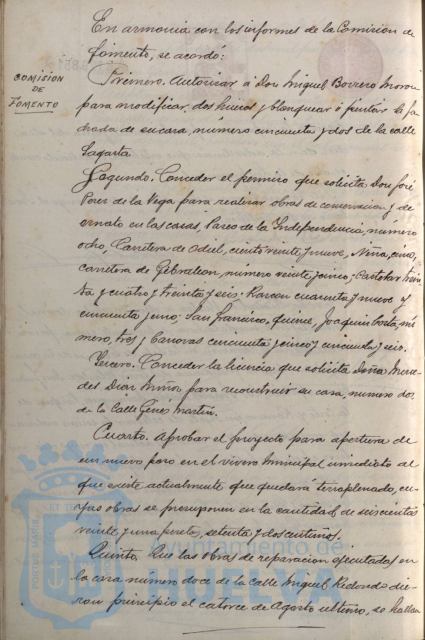 En armonia con los informes de la Comision de
fomento, se acordó:
COMISION
DE
FOMENTO
Primero. Autorizar á Don Miguel Borrero Moron
para modificar dos huecos y blanquear ó pintar la fa
chada de su casa, número cincuenta y dos de la calle
Sagasta.
Segundo. Conceder el permiso que solicita Don José
Perez de la Vega para realizar obras de conservacion y de
ornato en las casas, Paseo de la Independencia, número
ocho, Carretera de Odiel, ciento veinte y nueve, Niña, cinco,
carretera de Gibraleon, numero veinte y cinco; Carto trein
ta y cuatro y treinta y seis; Rascon cuarenta y nueve y
cincuenta y uno; San Francisco, quince, Joaquin Costa, nú
mero, tres y Canovas cincuenta y cinco y cincuenta y seis.
Tercero. Conceder la licencia que solicita Doña Merce
des Diaz Muñoz para reconstruir su casa, numero dos
de la Calle Ginés Martin.
Cuarto. Aprobar el proyecto para apertura de
un nuevo pozo en el vivero Municipal inmediato al
que existe actualmente que quedará terraplenado, cu-
yas obras se presuponen en la cantidad de seiscientas
veinte y una pesetas, setenta y dos centimos.
Quinto. Que las obras de reparacion ejecutadas en
la casa número doce de la Calle Miguel Redondo die-
ron principio el catorce de Agosto ultimo, se hallan
PORTUS MARIS
ET TE
Ayuntamiento de
HUELVA